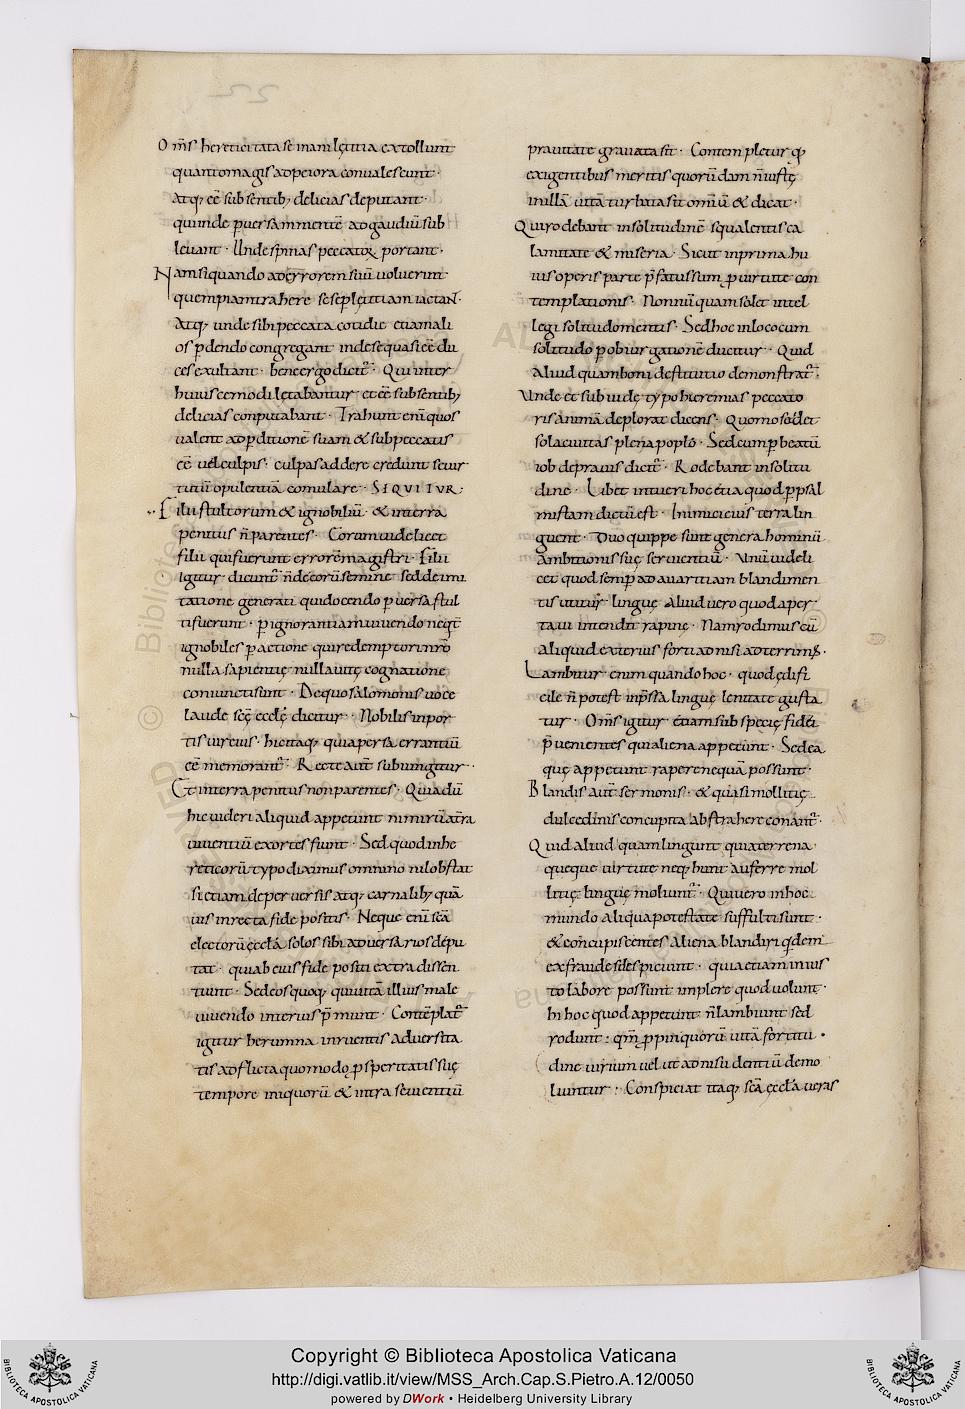 Om̄s heretici tata sē inani lętitia extollunt
quanto magis ad peiora convalescunt ·
Atq; eē sub sentib; delicias deputant ·
qui inde pversam mentē ad gaudiū sub
levant · Unde spinas peccatoȝ portant ·
Nam si quando ad errorem suū voluerint
quempiam trahere se se p lętitiam iactan̄ ·
Atq; unde sibi peccata cotidie etiam ali
os pdendo congregant inde se quasi eē du
ces exultant · bene ergo dicit̄ · Qui inter
huiuscemodi lętabantur et eē sub sentib;
delicias conputabant · Trahunt enī quos
valent ad pditionē suam & sub peccatis
eē vel culpis · culpas addere credunt se vir
tutū opulentiā comulare · SEQUITUR ·
Filii stultorum & ignobiliū · & in terra
penitus n̄ parentes · Eorum videlicet
filii qui fuerunt errorē magistri · Filii
igitur · dicunt̄ n̄ de eorū semine sed de imi
tatione generati qui docendo pversa stul
ti fuerunt · p ignorantiam vivendo neq̄
ignobiles p actione qui redemptori nr̄o
nulla sapientię nulla vitę cognatione
coniuncti sunt · De quo salomonis voce
laude sc̄ę ecclę dicitur · Nobilis in por
tis vir eius · hic itaq; quia persa errantiū
eē memorant̄ · Recte aut̄ subiungitur ·
Et in terra penitus non parentes · Quia dū
hic videri aliquid appetunt nimirū a tr̄a
viventiū exortes fiunt · Sed quod in he
reticorū typo diximus omnino nil obstat
si etiam de perversis atq; carnalib; quā
vis in recta fide positis · Neque enī sc̄a
electorū ęccla solos sibi adversarios depu
tat · qui ab eius fide positi extra dissen
tiunt · Sed eos quoq; qui vitā illius male
vivendo interius p̄munt · Contēplat̄
igitur herumna inruentis adversita
tis adflicta quomodo psperitatis suę
tempore iniquorū & intra sevientiū
pravitate gravata sit · Contempletur q̄
exigentibus meritis quorūdam n̄ iustę
in illā vitā turbata sit omiū & dicat ·
Qui rodebant in solitudinē squalentis ca
lamitate & miseria · Sicut in prima hu
ius operis parte p̄fati sum p virtute con
templationis · Nonnūquam solet intel
legi solitudo mentis · Sed hoc in loco cum
solitudo p obiurgationē dicitur · Quid
aliud quam boni destitutio demonstrat̄ ·
Unde & sub iudę typo hieremias peccato
ris animā deplorat dicens · Quomo sedet
sola civitas plena poplo · Sed cum p beatū
iob de pravis dicit̄ · Rodebant in solitu
dine · Libet intueri hoc etiā quod p psal
mistam dictū est · Inimici eius terra lin
guent · Duo quippe sunt genera hominū
ambitionis suę servientiū · Unū videli
cet quod semp ad avaritiam blandimen
tis utitur linguę Aliud vero quod aper
ta vi intendit rapinę · Nam rodimus cū
aliquid exterius forti ad nisi adterim; ·
Lambitur enim quando hoc · quod ędifi
cile n̄ potest inp̄ssa linguę lenitate gusta
tur · Om̄s igitur etiam sub specię fidei
p̄venientes qui aliena appetunt · Sed ea
quę appetunt rapere nequā possunt ·
Blandis aut̄ sermonis · & quasi mollitię
dulcedinis concupita abstrahere conant̄ ·
Quid aliud quam lingunt quia terrena
queque virtute neq; hunt auferre mol
litię linguę moliunt̄ · Qui vero in hoc
mundo aliqua potestate suffulti sunt ·
& concupiscentes aliena blandiri qdem
ex fraude sdespiciunt · quia etiam in ius
to labore possunt implere quod volunt ·
hi hoc quod appetunt n̄ lambiunt sed
rodunt : qm̄ ppinquorū vitā fortitu ·
dine virium velut ad nisu dentiū demo
liuntur : · Conspiciat itaq; sc̄a ęccla veras
Copyright © Biblioteca Apostolica Vaticana
http://digi.vatlib.it/view/MSS_Arch.Cap.S.Pietro.A.12/0050
powered by DWork • Heidelberg University Library